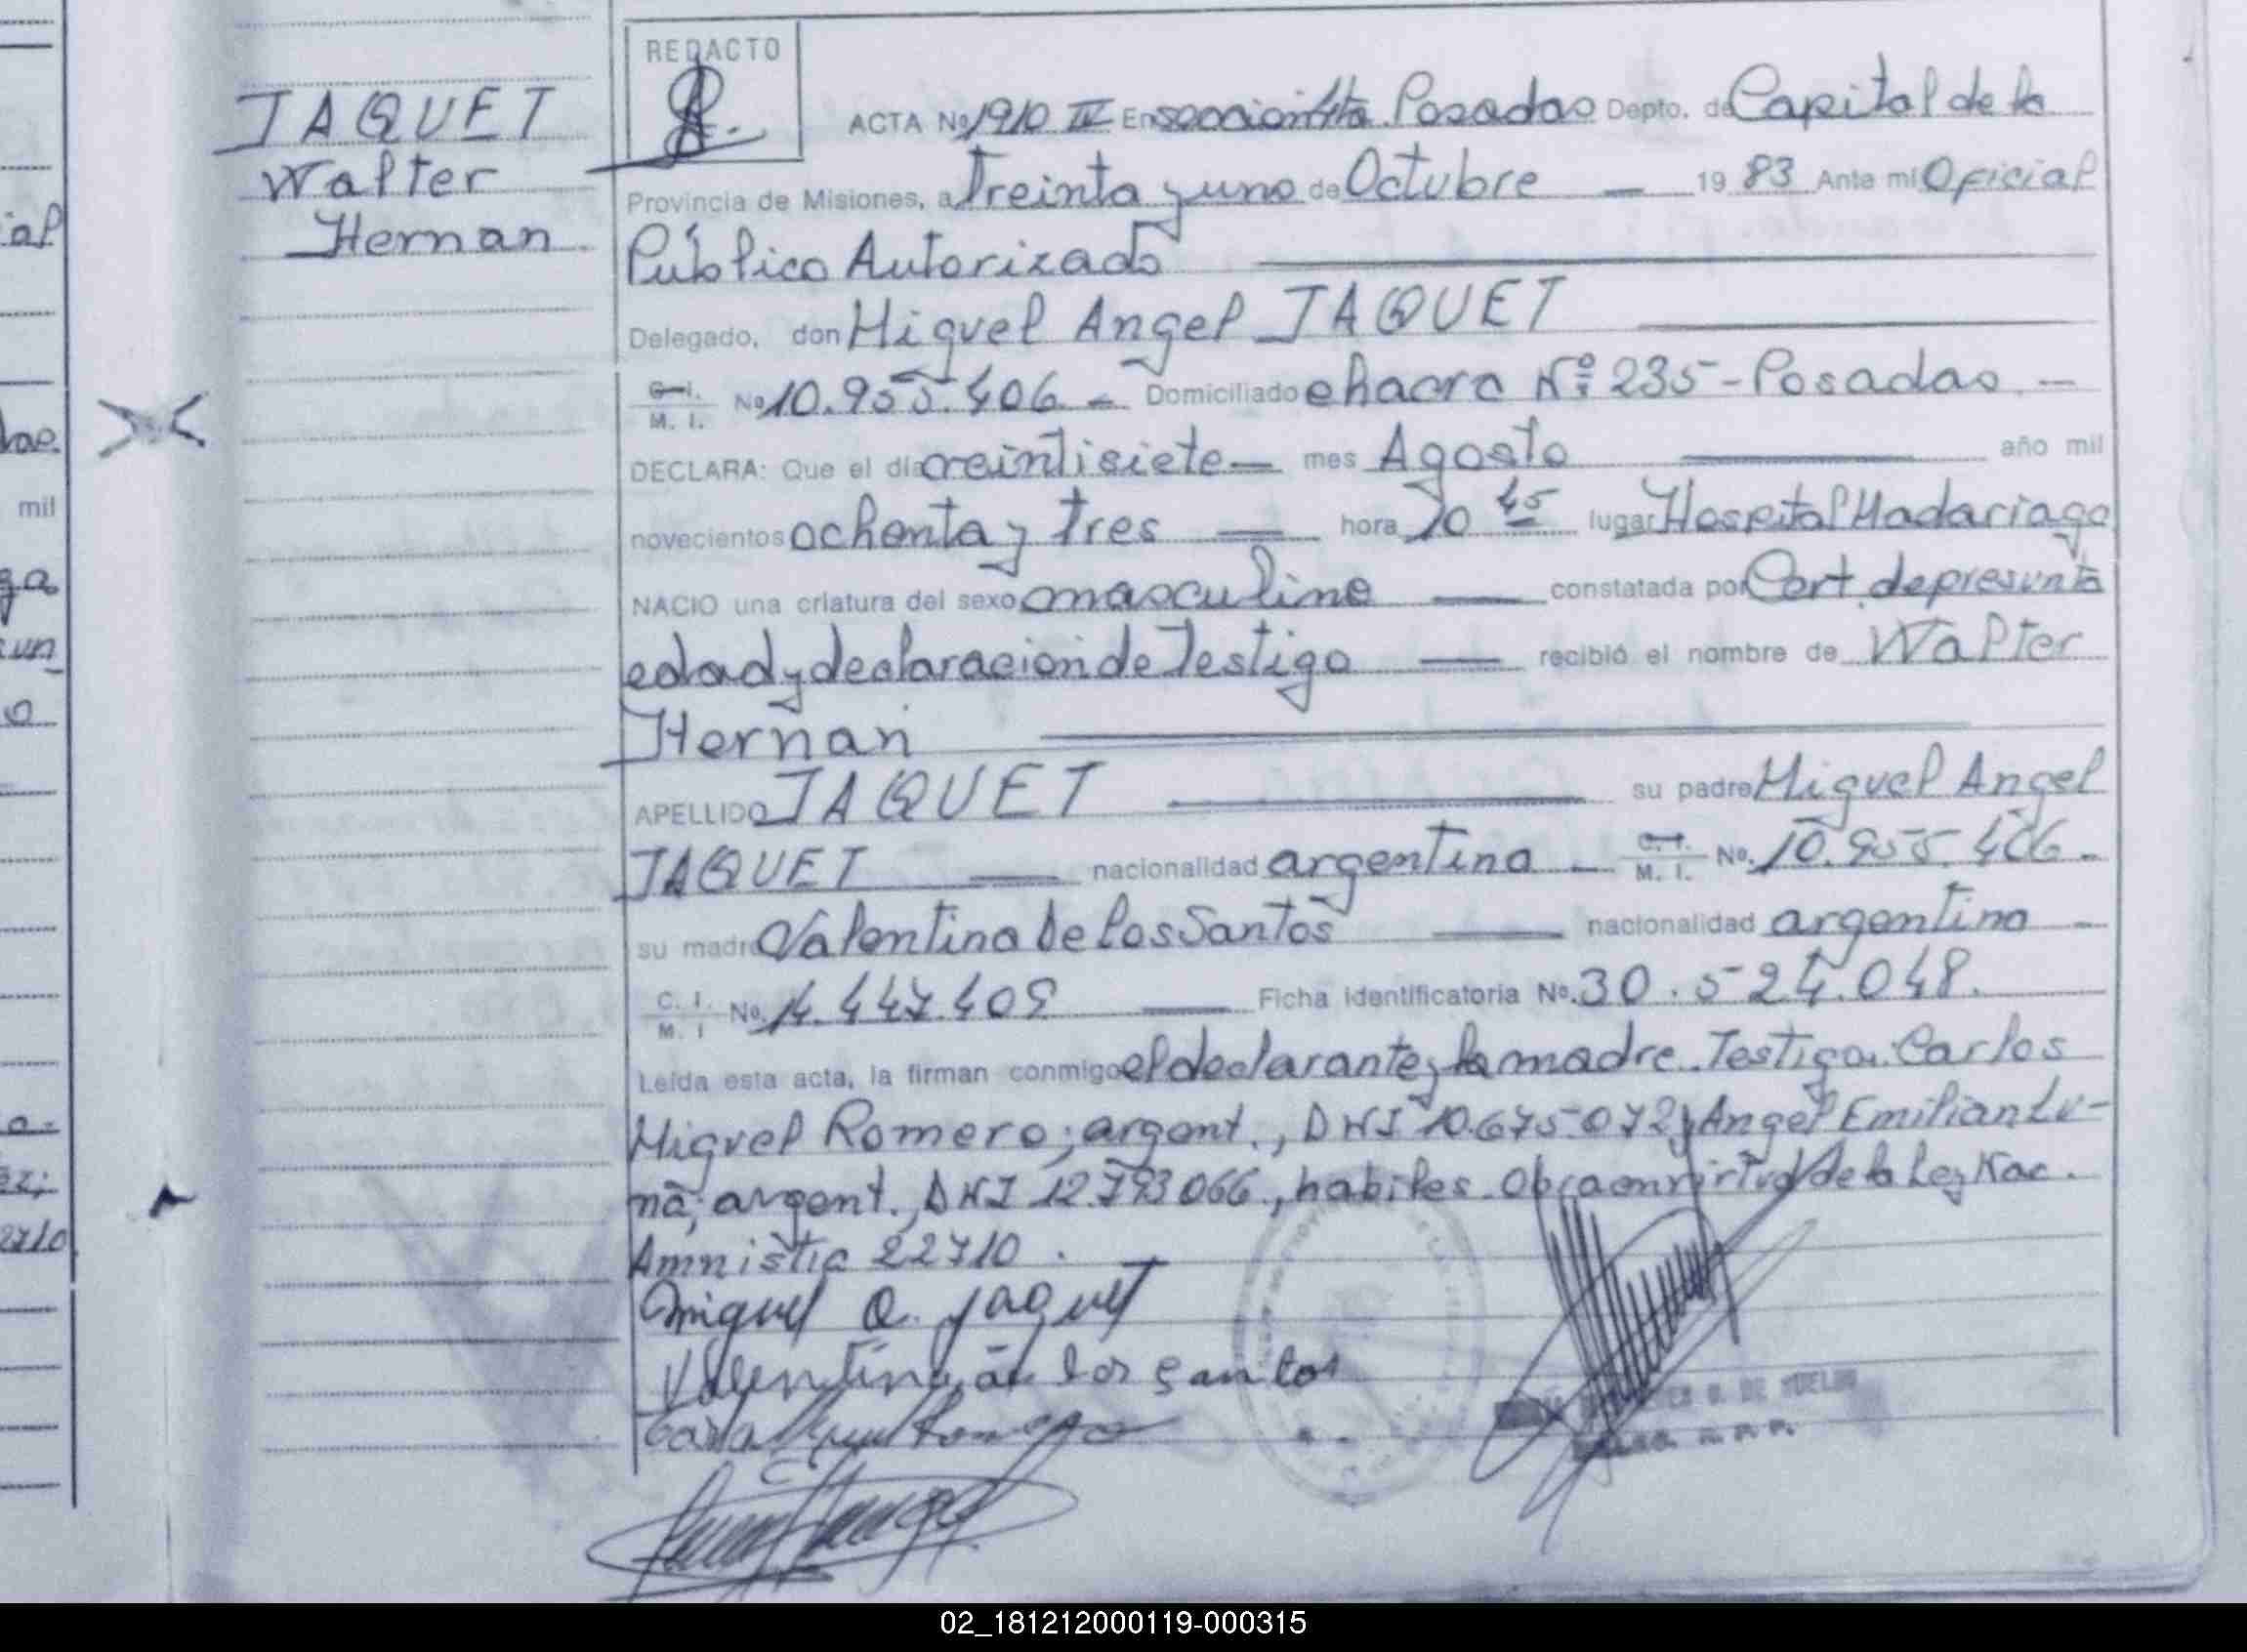 JAQUET
Walter
Hernan
REDACTO
ACTA Nº 1910 IV En sección 4ta. Posadas Depto. de Capital de la
Provincia de Misiones, a Treinta y uno de Octubre — 19 83 Ante mi Oficial
Público Autorizado
Delegado, don Miguel Angel JAQUET
C.I. M. I. Nº 10.955.406 — Domiciliado chacra Nº 235 - Posadas —
DECLARA: Que el día veintisiete — mes Agosto — año mil
novecientos ochenta y tres — hora 10 45 lugar Hospital Madariaga
NACIO una criatura del sexo masculino — constatada por Cert. de presunta
edad y declaración de Testigo — recibió el nombre de Walter
Hernan
APELLIDO JAQUET — su padre Miguel Angel
JAQUET — nacionalidad argentina — C.I. M. I. Nº. 10.955.406 -
su madre Valentina De Los Santos — nacionalidad argentina -
C. I. M. I Nº. 14.447.409 — Ficha identificatoria Nº. 30.524.048.
Leída esta acta, la firman conmigo el declarante y la madre. Testigos: Carlos
Miguel Romero; argent., DNI 10.675.072 y Angel Emilian Lu-
na; argent., DNI 12.793.066, hábiles. Obra en virtud de la Ley Nac.
Amnistia 22710.
Miguel A. Jaquet
Valentina de los Santos
ial
mil
ga
un
o
ez;
2710
02_181212000119-000315